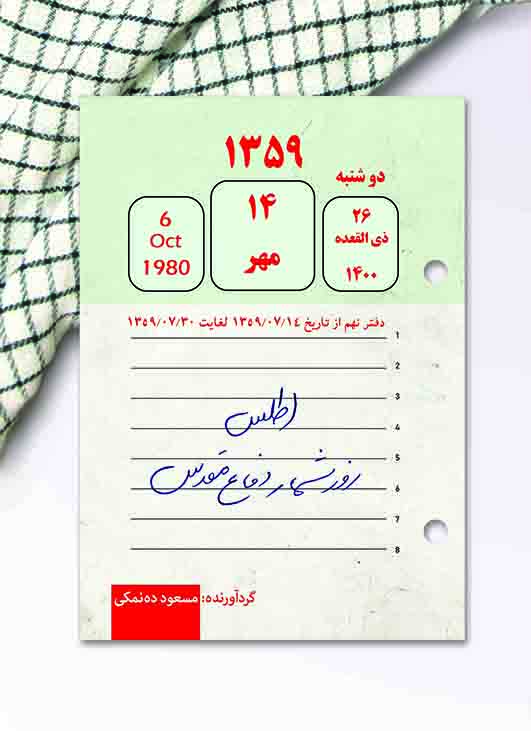 ۱۳۵۹
دو شنبه
۲۶
ذی القعده
۱۴۰۰
۱۴
مهر
6
Oct
1980
دفتر نهم از تاریخ ۱۳۵۹/۰۷/۱٤ لغایت ۱۳۵۹/۰۷/۳۰
1
2
3
اطلس
4
5
روزشمار دفاع مقدس
6
7
8
گردآورنده: مسعود ده‌نمکی